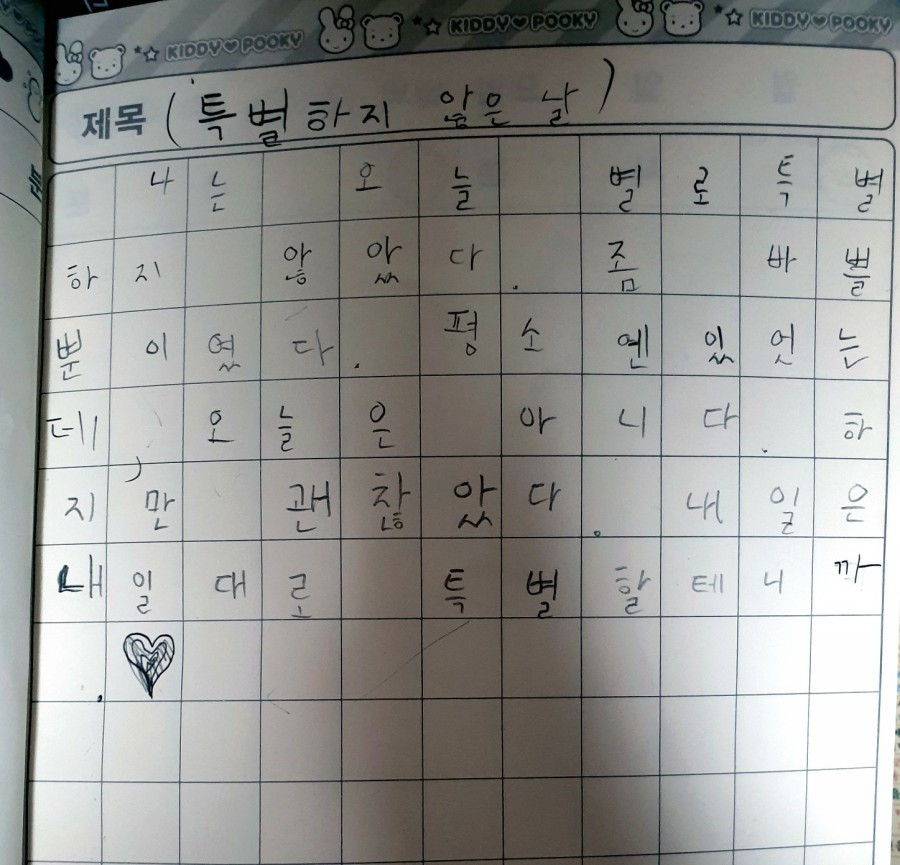 KIDDY♥POOKY KIDDY♥POOKY KIDDY♥POOKY
제목 (특별하지 않은 날)
나는 오늘 별로특별
하지 않았다. 좀 바쁠
뿐이였다. 평소엔있엇는
데, 오늘은 아니다. 하
지만 괜찮았다. 내일은
내일대로 특별할테니까
. ♥